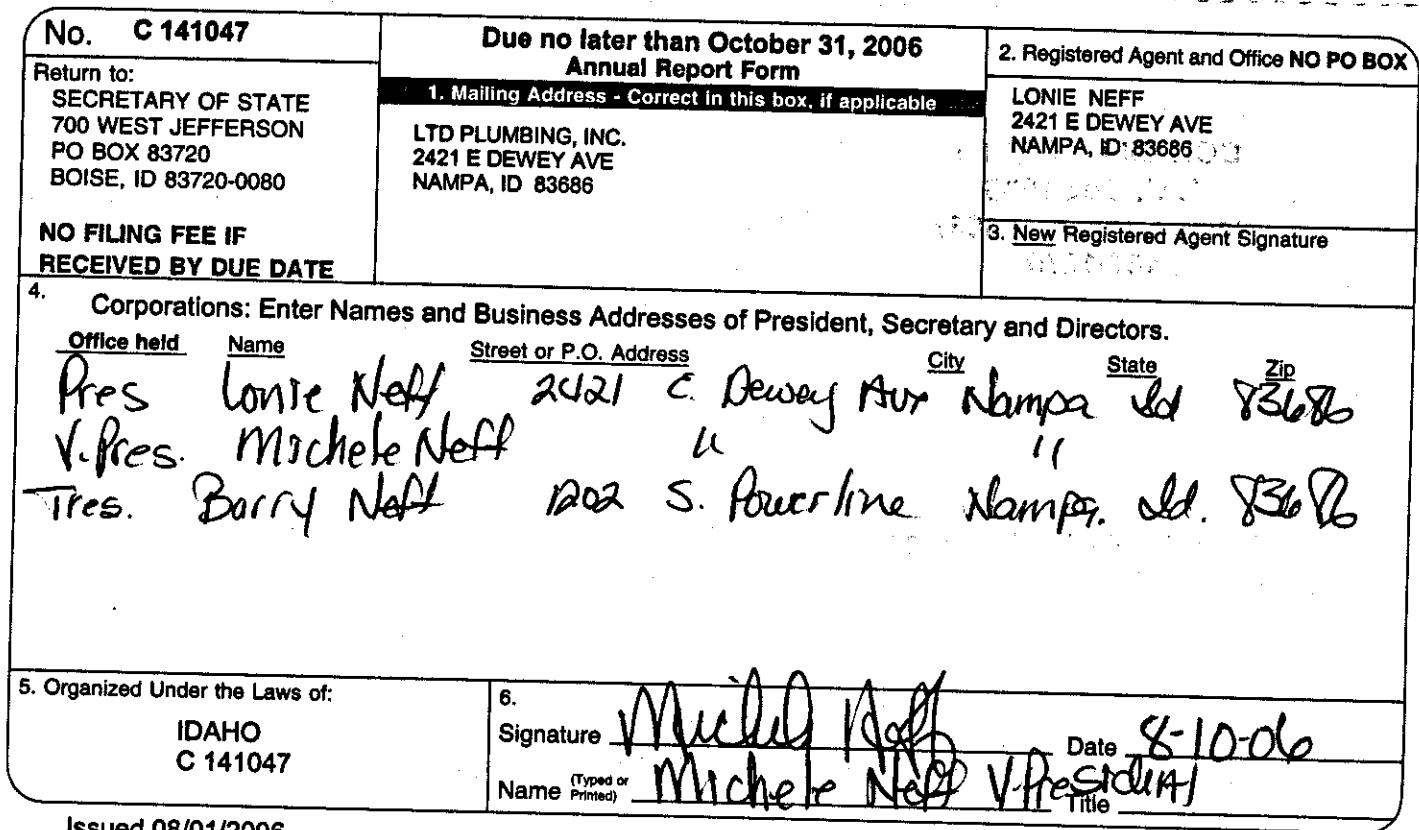 No. C 141047
Return to:
SECRETARY OF STATE
700 WEST JEFFERSON
PO BOX 83720
BOISE, ID 83720-0080
NO FILING FEE IF
RECEIVED BY DUE DATE
Due no later than October 31, 2006
Annual Report Form
1. Mailing Address - Correct in this box, if applicable
LTD PLUMBING, INC.
2421 E DEWEY AVE
NAMPA, ID 83686
2. Registered Agent and Office NO PO BOX
LONIE NEFF
2421 E DEWEY AVE
NAMPA, ID 83686
3. New Registered Agent Signature
4. Corporations: Enter Names and Business Addresses of President, Secretary and Directors.
Office held Name Street or P.O. Address City State Zip
Pres Lonie Neff 2421 E. Dewey Ave Nampa Id 83686
V. Pres. Michele Neff " "
Tres. Barry Neff 1202 S. Powerline Nampa. Id. 83686
5. Organized Under the Laws of:
IDAHO
C 141047
6.
Signature Michele Neff Date 8-10-06
Name (Typed or Printed) Michele Neff V. President Title
Issued 08/01/2006